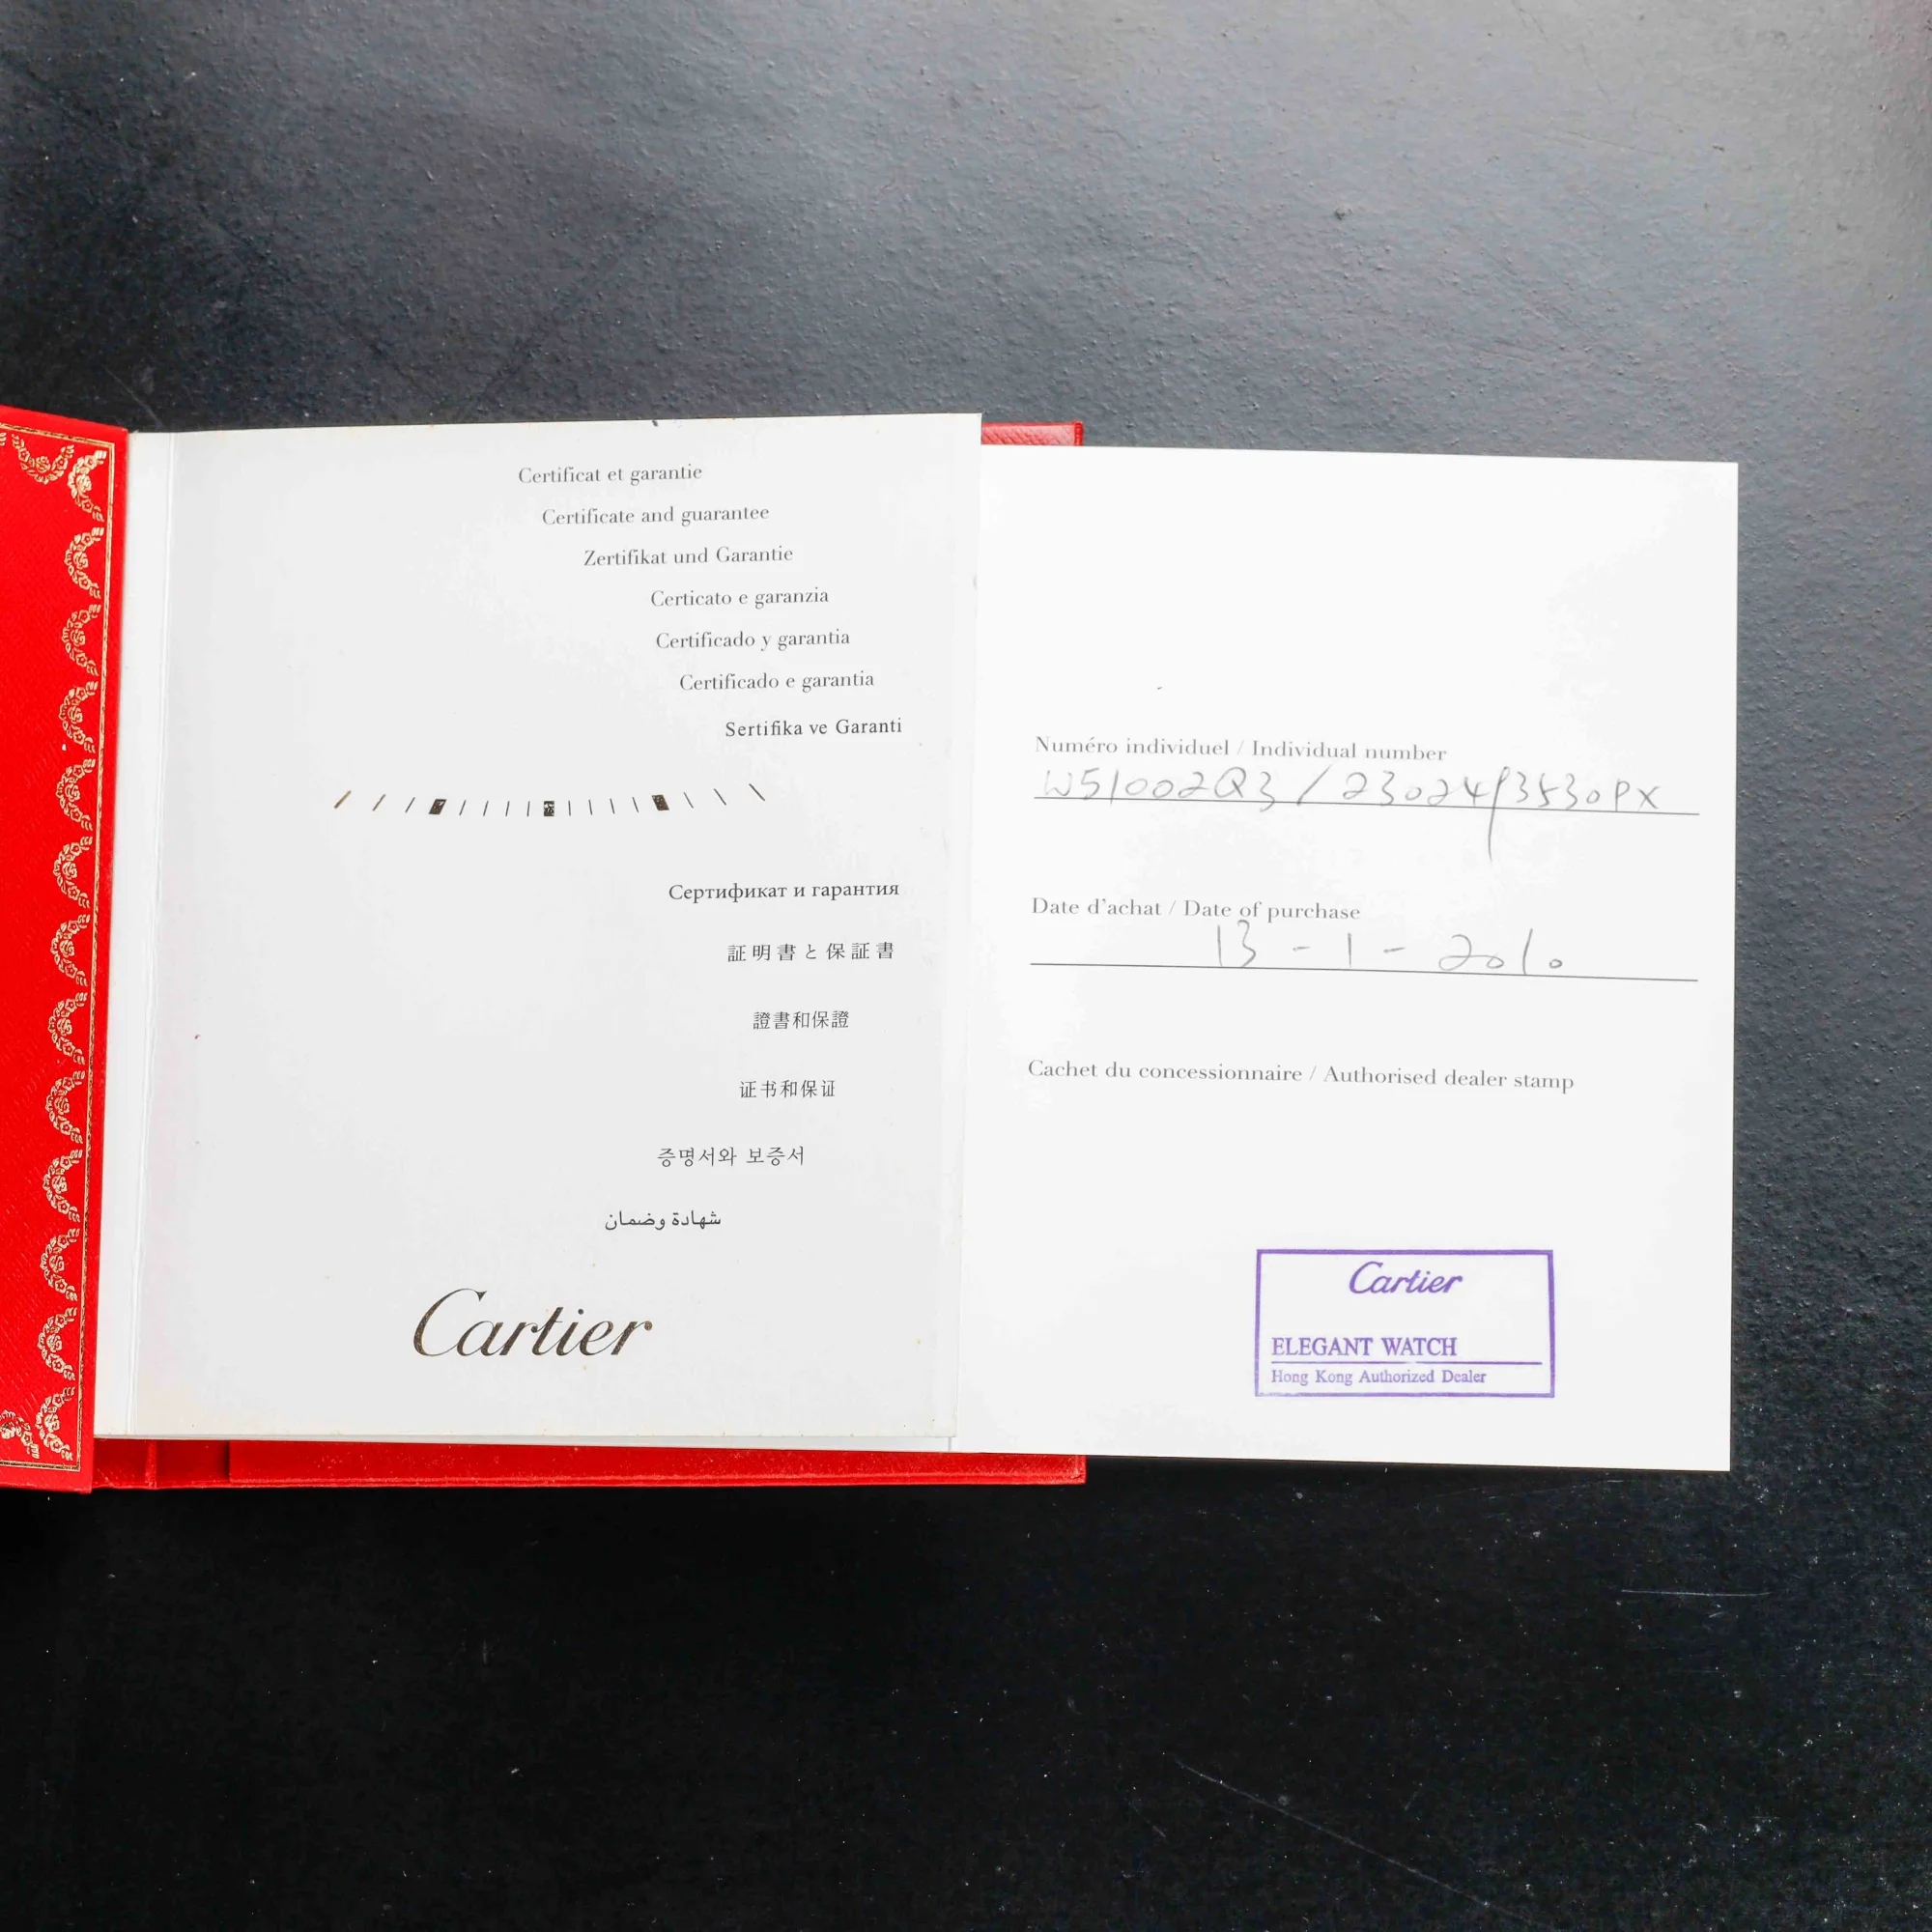 Certificat et garantie
Certificate and guarantee
Zertifikat und Garantie
Certicato e garanzia
Certificado y garantia
Certificado e garantia
Sertifika ve Garanti
Сертификат и гарантия
証明書と保証書
證書和保證
证书和保证
증명서와 보증서
شهادة وضمان
Cartier
Numéro individuel / Individual number
W51002Q3 /
Date d'achat / Date of purchase
13 - 1 - 2010
Cachet du concessionnaire / Authorised dealer stamp
Cartier
ELEGANT WATCH
Hong Kong Authorized Dealer